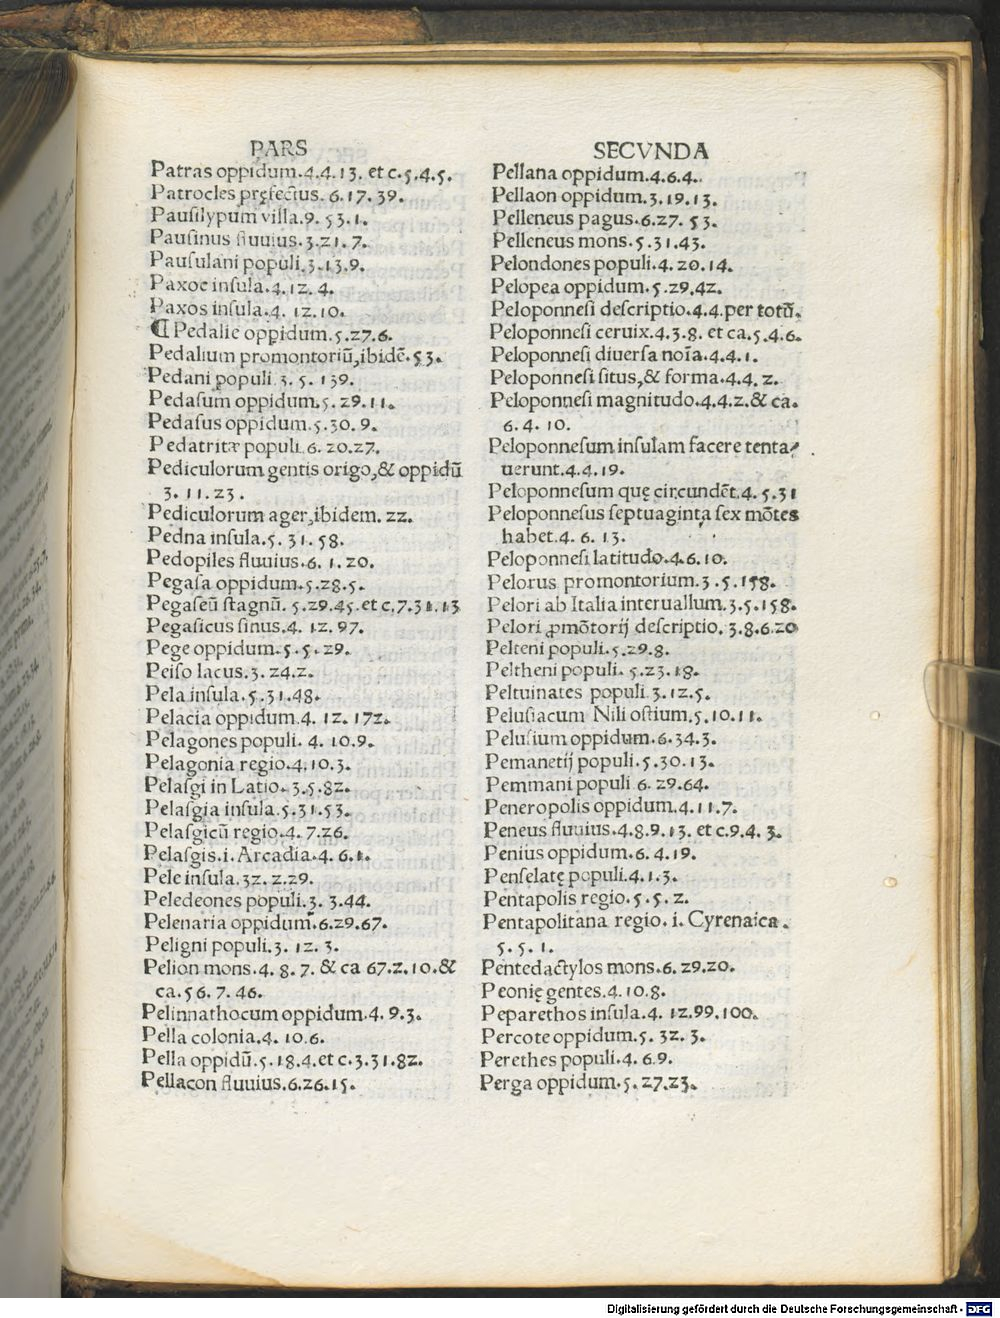 PARS
Patras oppidum.4.4.13. et c.5.4.5.
Patrocles pręfectus.6.17.39.
Pauſilypum villa.9.53.1.
Pauſinus fluuius.3.21.7.
Pauſulani populi.3.13.9.
Paxoe inſula.4.12.4.
Paxos inſula.4.12.10.
¶ Pedalie oppidum.5.27.6.
Pedalium promontoriũ,ibidẽ.53.
Pedani populi.3.5.139.
Pedaſum oppidum.5.29.11.
Pedaſus oppidum.5.30.9.
Pedatritæ populi.6.20.27.
Pediculorum gentis origo,& oppidũ
3.11.23.
Pediculorum ager,ibidem.22.
Pedna inſula.5.31.58.
Pedopiles fluuius.6.1.20.
Pegaſa oppidum.5.28.5.
Pegaſeũ ſtagnũ.5.29.45.et c.7.31.13
Pegaſicus ſinus.4.12.97.
Pege oppidum.5.5.29.
Peiſo lacus.3.24.2.
Pela inſula.5.31.48.
Pelacia oppidum.4.12.172.
Pelagones populi.4.10.9.
Pelagonia regio.4.10.3.
Pelaſgi in Latio.3.5.82.
Pelaſgia inſula.5.31.53.
Pelaſgicũ regio.4.7.26.
Pelaſgis.i.Arcadia.4.6.1.
Pele inſula.32.2.29.
Peledeones populi.3.3.44.
Pelenaria oppidum.6.29.67.
Peligni populi.3.12.3.
Pelion mons.4.8.7.& ca 67.2.10.&
ca.56.7.46.
Pelinnathocum oppidum.4.9.3.
Pella colonia.4.10.6.
Pella oppidũ.5.18.4.et c.3.31.82.
Pellacon fluuius.6.26.15.
SECVNDA
Pellana oppidum.4.6.4.
Pellaon oppidum.3.19.13.
Pelleneus pagus.6.27.53.
Pelleneus mons.5.31.43.
Pelondones populi.4.20.14.
Pelopea oppidum.5.29.42.
Peloponneſi deſcriptio.4.4.per totũ.
Peloponneſi ceruix.4.3.8. et ca.5.4.6.
Peloponneſi diuerſa noĩa.4.4.1.
Peloponneſi ſitus,& forma.4.4.2.
Peloponneſi magnitudo.4.4.2.& ca.
6.4.10.
Peloponneſum inſulam facere tenta⸗
uerunt.4.4.19.
Peloponneſum quę circundẽt.4.5.31
Peloponneſus ſeptuaginta ſex mõtes
habet.4.6.13.
Peloponneſi latitudo.4.6.10.
Pelorus promontorium.3.5.158.
Pelori ab Italia interuallum.3.5.158.
Pelori ꝓmõtorij deſcriptio.3.8.6.20
Pelteni populi.5.29.8.
Peltheni populi.5.23.18.
Peltuinates populi.3.12.5.
Peluſiacum Nili oſtium.5.10.11.
Peluſium oppidum.6.34.3.
Pemanetij populi.5.30.13.
Pemmani populi.6.29.64.
Peneropolis oppidum.4.11.7.
Peneus fluuius.4.8.9.13. et c.9.4.3.
Penius oppidum.6.4.19.
Penſelatę populi.4.1.3.
Pentapolis regio.5.5.2.
Pentapolitana regio.i.Cyrenaica.
5.5.1.
Pentedactylos mons.6.29.20.
Peonię gentes.4.10.8.
Peparethos inſula.4.12.99.100.
Percote oppidum.5.32.3.
Perethes populi.4.6.9.
Perga oppidum.5.27.23.
Digitalisierung gefördert durch die Deutsche Forschungsgemeinschaft - DFG